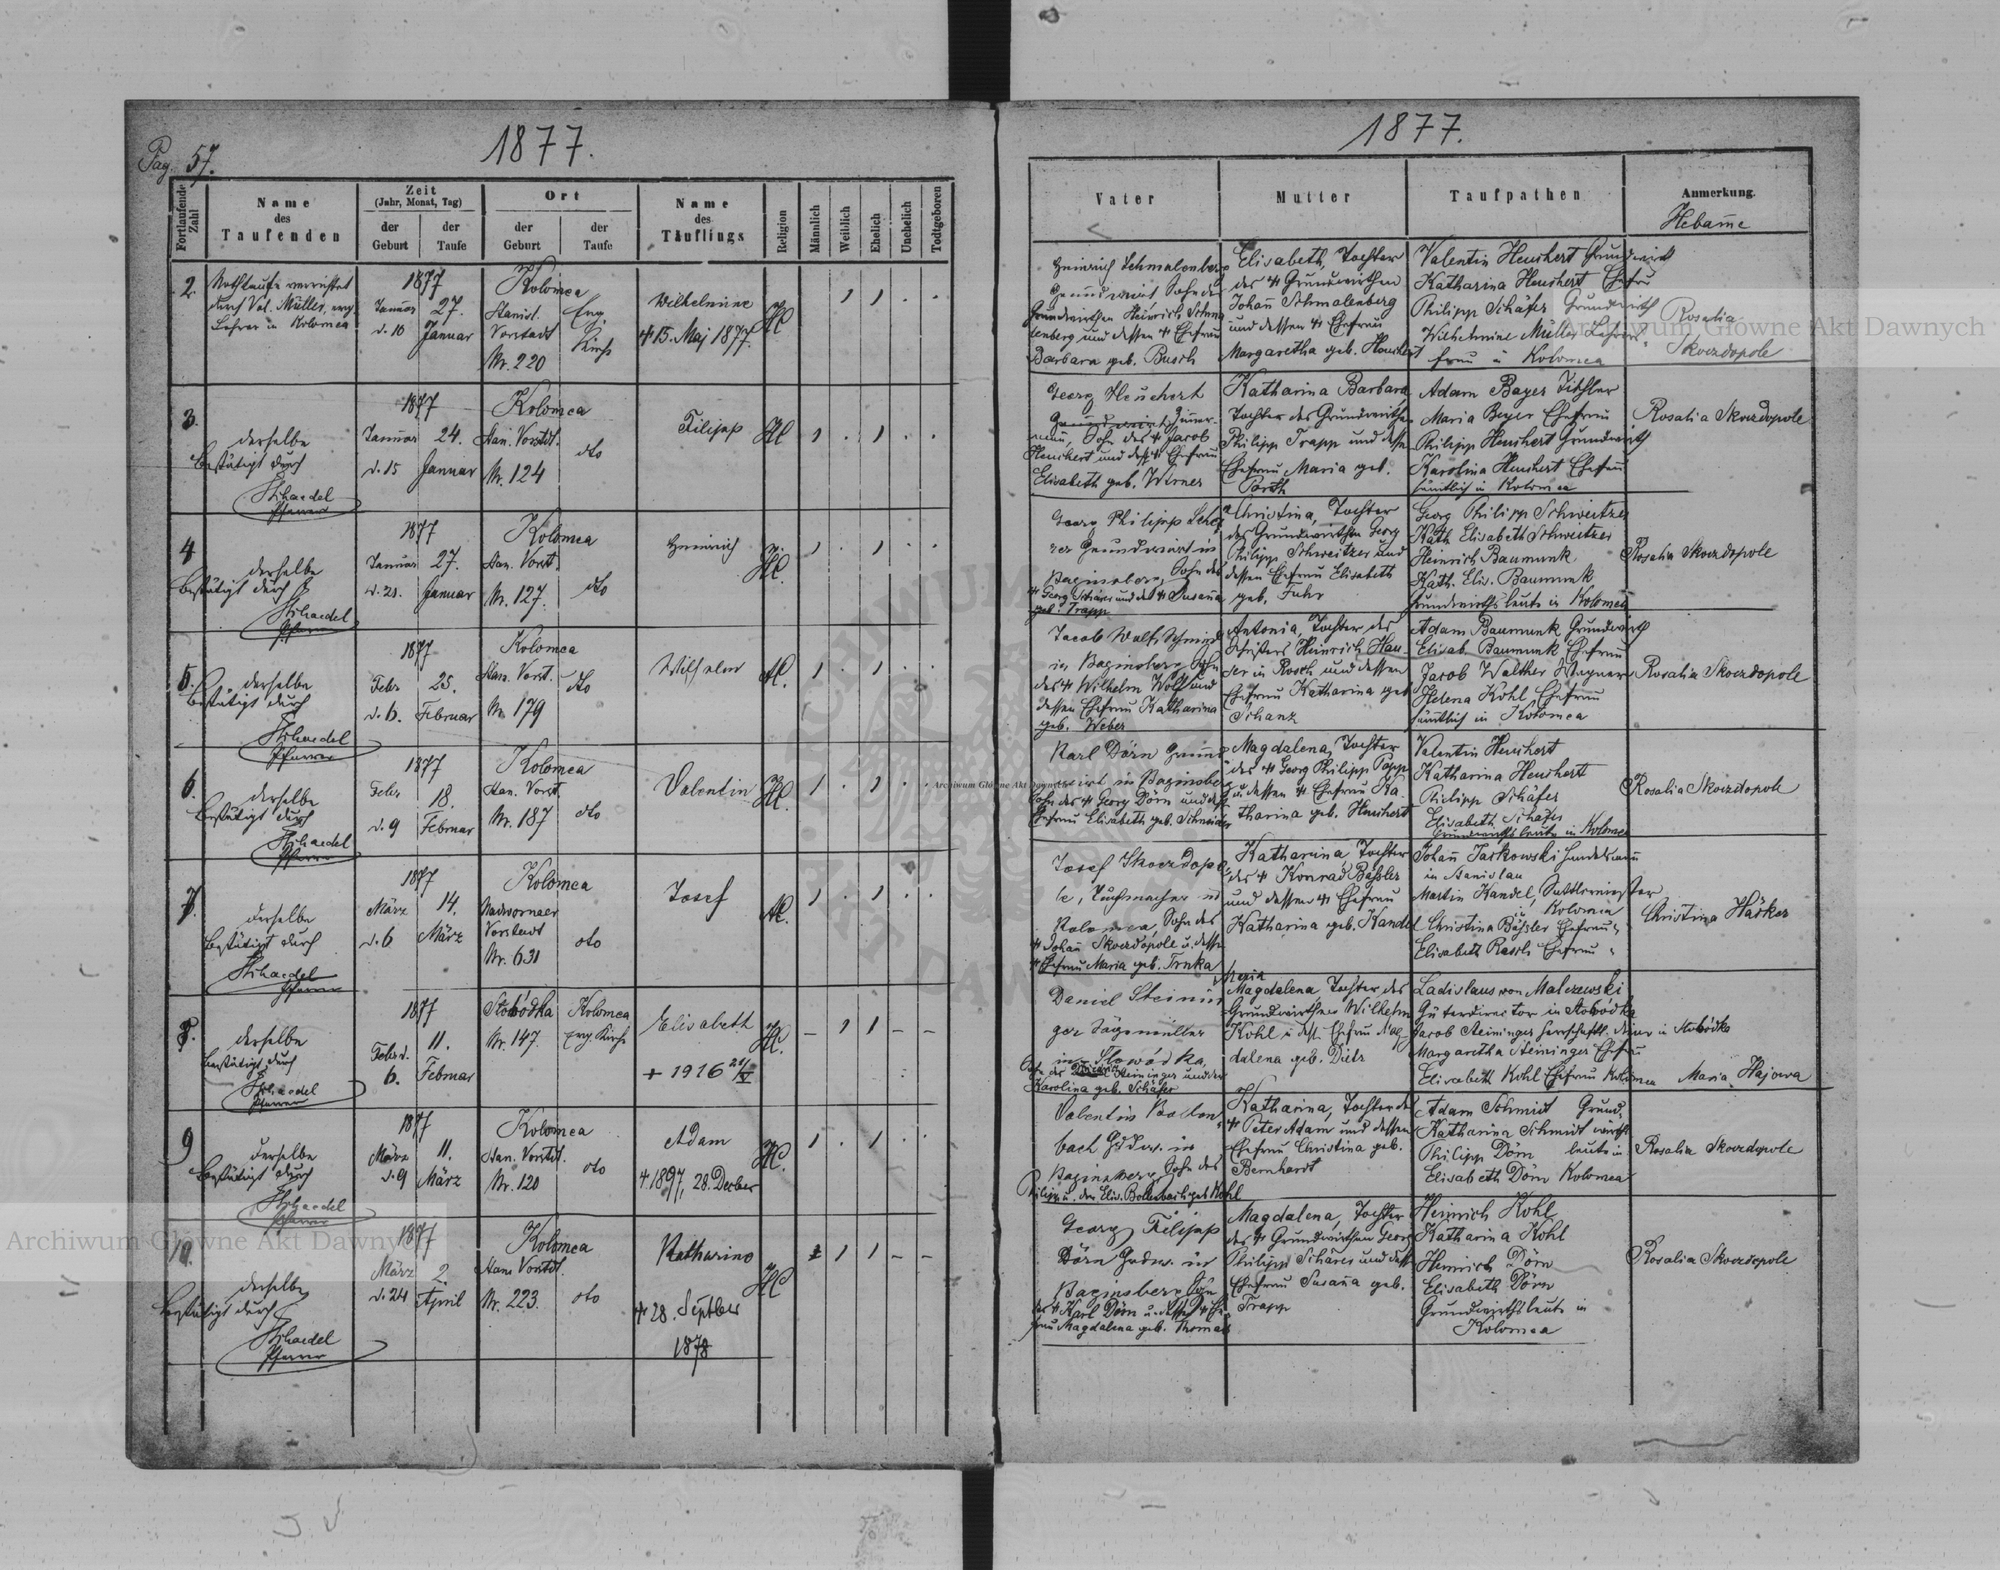 Pag. 57.
1877.
Fortlaufende Zahl
Name
des
Taufenden
Zeit
(Jahr, Monat, Tag)
der
Geburt
der
Taufe
Ort
der
Geburt
der
Taufe
Name
des
Täuflings
Religion
Männlich
Weiblich
Ehelich
Unehelich
Todtgeboren
2.
Nothtaufe verrichtet
durch Val. Müller, evng.
Lehrer in Kolomea
1877
Januar 27.
d. 10 Januar
Kolomea
Stanisl.
Vorstadt
Nr. 220
Evng.
Kirche
Wilhelmine
15. Maj 1877.
3.
derselbe
bestätigt durch
Schaedel
Pfarrer
1877
Januar 24.
d. 15 Januar
Kolomea
Stan. Vorstdt.
Nr. 124
dto
Filipp
4
derselbe
bestätigt durch
Schaedel
Pfarrer
1877
Januar 27.
d. 21. Januar
Kolomea
Stan. Vorst.
Nr. 127.
dto
Heinrich
5.
derselbe
bestätigt durch
Schaedel
Pfarrer
1877
Febr 25.
d. 6. Februar
Kolomea
Stan. Vorst.
Nr. 179
dto
Wilhelm
6.
derselbe
bestätigt durch
Schaedel
Pfarrer
1877
Febr 18.
d. 9 Februar
Kolomea
Stan. Vorst
Nr. 187
dto
Valentin
7.
derselbe
bestätigt durch
Schaedel
Pfarrer
1877
März 14.
d. 6 März
Kolomea
Nadwornaer
Vorstadt
Nr. 631
dto
Josef
8.
derselbe
bestätigt durch
Schaedel
Pfarrer
1877
Febr d. 11.
6. Februar
Słobódka
Nr. 147.
Kolomea
Evg. Kirche
Elisabeth
+ 1916 21/V
9
derselbe
bestätigt durch
Schaedel
Pfarrer
1877
März 11.
d. 9 März
Kolomea
Stan. Vorstdt.
Nr. 120
dto
Adam
1897, 28. Decber
10.
derselbe
bestätigt durch
Schaedel
Pfarrer
1877
März 2.
d. 24 April
Kolomea
Stan. Vorstdt.
Nr. 223.
dto
Katharina
28. Septber
1878
1877.
Vater
Mutter
Taufpathen
Anmerkung.
Hebame
Heinrich Schmalenberg
Grundwirt, Sohn des
Grundwirthen Heinrich Schma
lenberg und dessen Ehefrau
Barbara geb. Busch
Elisabeth, Tochter
des Grundwirthen
Johan Schmalenberg
und dessen Ehefrau
Margaretha geb. Heuchert
Valentin Heuchert Grundwirt
Katharina Heuchert Ehefrau
Philipp Schäfer Grundwirth
Wilhelmine Müller Lehrers
frau in Kolomea
Rosalia
Skoezdopole
Georg Heuchert
Sohn des Jacob
Heuchert und dess. Ehefrau
Elisabeth geb. Werner
Katharina Barbara
Tochter des Grundwirthen
Philipp Trapp und dessen
Ehefrau Maria geb.
Porth
Adam Bayer Tischler
Maria Beyer Ehefrau
Philipp Heuchert Grundwirth
Karolina Heuchert Ehefrau
sämtlich in Kolomea
Rosalia Skoezdopole
Georg Philipp Scherer
Grundwirt in
Baginsberg, Sohn des
Georg Schärer und der Susanna
geb. Trapp
Christina, Tochter
des Grundwirthen Georg
Philipp Schweitzer und
dessen Ehefrau Elisabeth
geb. Fuhr
Georg Philipp Schweitzer
Kath Elisabeth Schweitzer
Heinrich Baumunk
Kath. Elis. Baumunk
Grundwirthsleute in Kolomea
Rosalia Skoezdopole
Jacob Wolf, Schmied
in Baginsberg Sohn
des Wilhelm Wolf und
dessen Ehefrau Katharina
geb. Weber
Antonia, Tochter des
Heinrich Hau-
ser in Rosch und dessen
Ehefrau Katharina geb
Schanz
Adam Baumunk Grundwirth
Elisab. Baumunk Ehefrau
Jacob Walther Wagner
Helena Kohl Ehefrau
sämtlich in Kolomea
Rosalia Skoezdopole
Karl Dörn Grund
wirt in Baginsberg
Sohn des Georg Dörn und dess.
Ehefrau Elisabeth geb. Schneider
Magdalena, Tochter
des Georg Philipp Popp
u. dessen Ehefrau Ka-
tharina geb. Heuchert
Valentin Heuchert
Katharina Heuchert
Philipp Schäfer
Elisabeth Schäfer
Grundwirthsleute in Kolomea
Rosalia Skoezdopole
Josef Skoezdopo
le, Tuchmacher in
Kolomea, Sohn des
Johan Skoezdopole u. dessen
Ehefrau Maria geb. Trnka
Katharina, Tochter
des Konrad Bäßler
und dessen Ehefrau
Katharina geb. Kandel
Johan Jaskowski Handelsman
in Stanislau
Martin Kandel, Sattlermeister
in Kolomea
Christina Bäßler Ehefrau "
Elisabeth Rasch Ehefrau "
Christina Häcker
Daniel Steinin
ger Sägemüller
in Słowódka,
Sohn des Steininger und der
Karolina geb. Schäfer
Maria
Magdalena Tochter des
Grundwirthen Wilhelm
Kohl u. dess. Ehefrau Mag-
dalena geb. Dietz
Ladislaus von Malczewski
Güterdirector in Słobódka
Jacob Steininger herrschaftl. diener in Słobódka
Margaretha Steininger Ehefrau
Elisabeth Kohl Ehefrau Kolomea
Maria Hajowa
Valentin Bollen
bach Gdw. in
Baginsberg Sohn des
Philipp u. der Elis. Bollenbach geb Kohl
Katharina, Tochter des
Peter Adam und dessen
Ehefrau Christina geb.
Bernhardt
Adam Schmidt Grund,
Katharina Schmidt wirths
Philipp Dörn leute in
Elisabeth Dörn Kolomea
Rosalia Skoezdopole
Georg Filipp
Dörn Gdw. in
Baginsberg Sohn
des Karl Dörn u. dessen Ehe
frau Magdalena geb. Thomas
Magdalena, Tochter
des Grundwirthen Georg
Philipp Schärer und dess.
Ehefrau Susana geb.
Trapp
Heinrich Kohl
Katharina Kohl
Heinrich Dörn
Elisabeth Dörn
Grundwirthsleute in
Kolomea
Rosalia Skoezdopole
Archiwum Główne Akt Dawnych
Archiwum Główne Akt Dawnych
Archiwum Główne Akt Dawnych